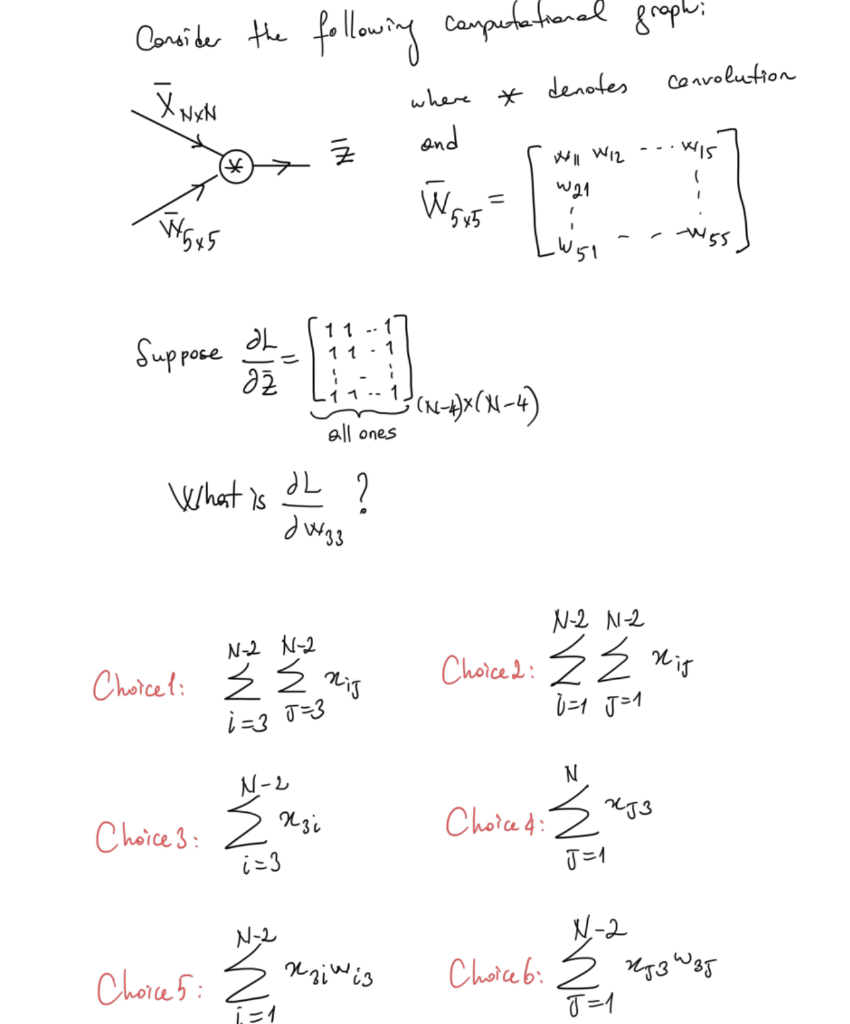 Consider the following computational graph:
X̄ N×N
* Z̄
W̄ 5×5
where * denotes convolution
and
W̄ 5×5 = [ w11 w12 --- w15
w21
w51 - - - w55 ]
Suppose ∂L/∂Z̄ = [ 1 1 .. 1
1 1 . 1
- 
1 1 .. 1 ] (N-4)×(N-4)
all ones
What is ∂L/∂w33 ?
Choice 1: ∑_{i=3}^{N-2} ∑_{J=3}^{N-2} x_{iJ}
Choice 2: ∑_{i=1}^{N-2} ∑_{J=1}^{N-2} x_{iJ}
Choice 3: ∑_{i=3}^{N-2} x_{3i}
Choice 4: ∑_{J=1}^{N} x_{J3}
Choice 5: ∑_{i=1}^{N-2} x_{3i} w_{i3}
Choice 6: ∑_{J=1}^{N-2} x_{J3} w_{3J}